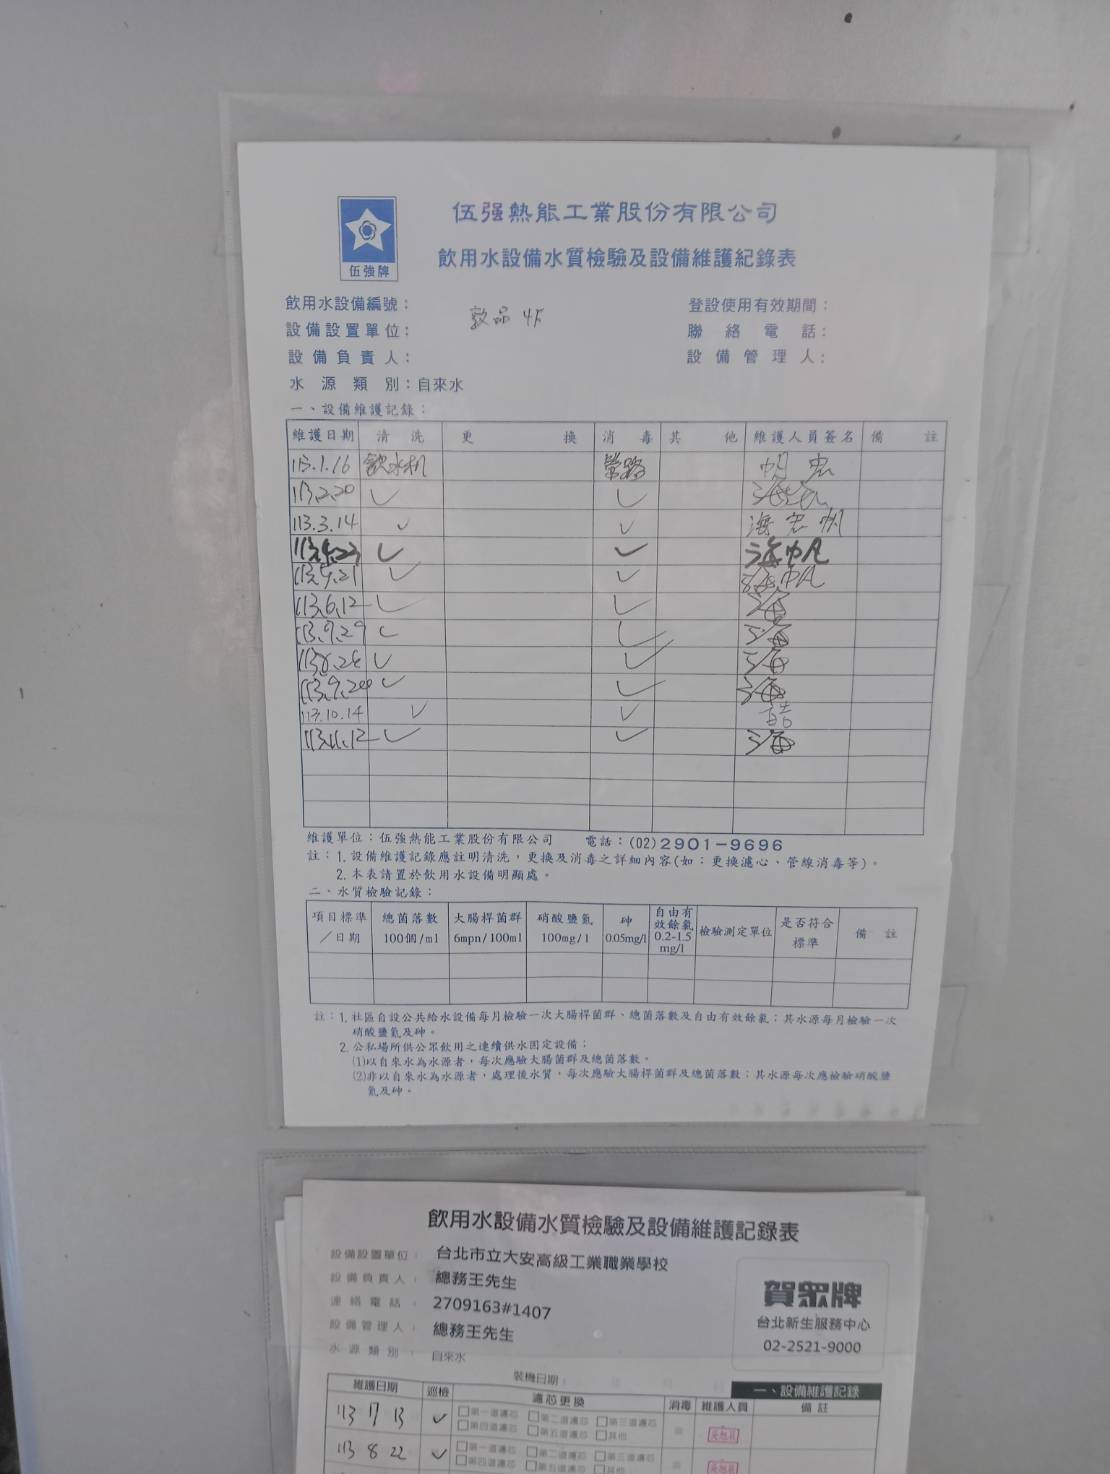 伍强熱能工業股份有限公司
伍強牌
飲用水設備水質檢驗及設備維護紀錄表
飲用水設備編號： 登設使用有效期間：
設備設置單位： 敦品 4F 聯絡電話：
設備負責人： 設備管理人：
水源類別：自來水
一、設備維護記錄：
維護日期 清洗 更換 消毒 其他 維護人員簽名 備註
113.1.16 飲水机 管路
113.2.20 ✓ ✓
113.3.14 ✓ ✓
113.4.23 ✓ ✓
113.5.21 ✓ ✓
113.6.12 ✓ ✓
✓ ✓
✓ ✓
✓ ✓
113.10.14 ✓ ✓
113.11.12 ✓ ✓
維護單位：伍強熱能工業股份有限公司 電話：(02)2901-9696
註：1.設備維護記錄應註明清洗，更換及消毒之詳細內容(如：更換濾心、管線消毒等)。
2.本表請置於飲用水設備明顯處。
二、水質檢驗記錄：
項目標準／日期 總菌落數 100個/ml 大腸桿菌群 6mpn/100ml 硝酸鹽氮 100mg/l 砷 0.05mg/l 自由有效餘氯 0.2-1.5 mg/l 檢驗測定單位 是否符合標準 備註
註：1.社區自設公共給水設備每月檢驗一次大腸桿菌群、總菌落數及自由有效餘氯；其水源每月檢驗一次
硝酸鹽氮及砷。
2.公私場所供公眾飲用之連續供水固定設備：
(1)以自來水為水源者，每次應驗大腸菌群及總菌落數。
(2)非以自來水為水源者，處理後水質，每次應驗大腸桿菌群及總菌落數；其水源每次應檢驗硝酸鹽
氮及砷。
飲用水設備水質檢驗及設備維護記錄表
設備設置單位： 台北市立大安高級工業職業學校
設備負責人： 總務王先生
連絡電話： 2709163#1407
設備管理人： 總務王先生
水源類別： 自來水
賀眾牌
台北新生服務中心
02-2521-9000
裝機日期：
一、設備維護記錄
維護日期 巡檢 濾芯更換 消毒 維護人員 備註
113 7 13 ✓ □第一道濾芯 □第二道濾芯 □第三道濾芯
□第四道濾芯 □第五道濾芯 □其他
113 8 22 ✓ □第一道濾芯 □第二道濾芯 □第三道濾芯
□第四道濾芯 □第五道濾芯 □其他